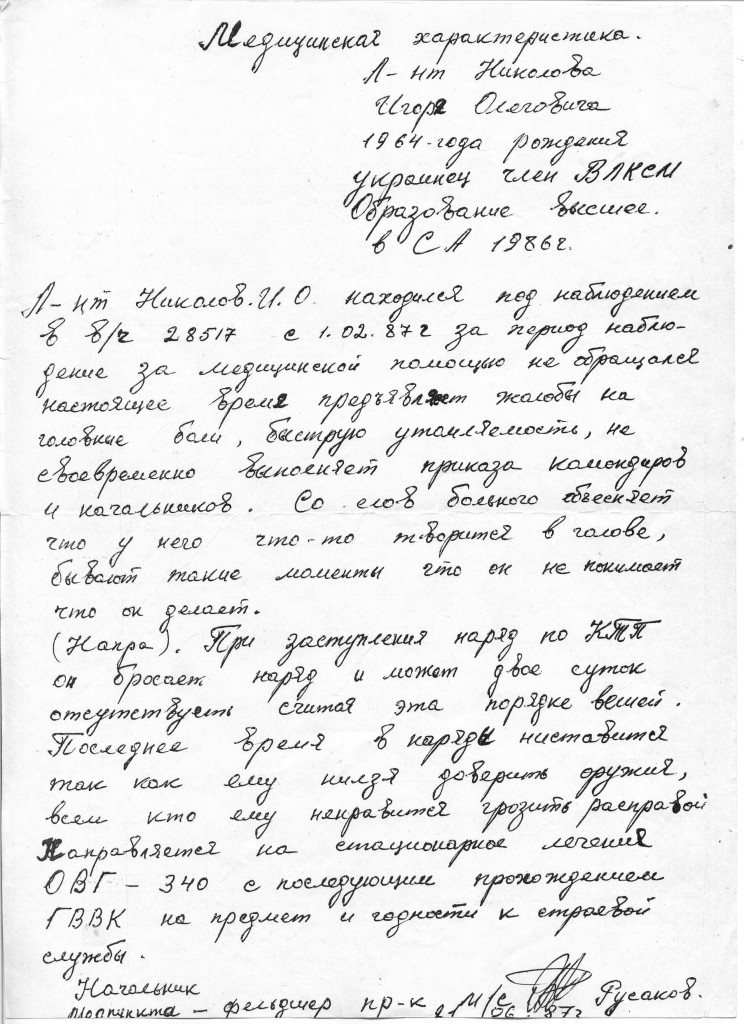 Медицинская характеристика.
Л-нт Николова
Игоря Олеговича
1964-года рождения
украинец член ВЛКСМ
Образование высшее.
в СА 1986г.
Л-нт Николов.И.О. находился под наблюдением
в в/ч 28517 с 1.02.87г за период наблю-
дение за медицинской помощью не обращался
настоящее время предъявляет жалобы на
головные боли, быструю утомляемость, не
своевременно выполняет приказа комондиров
и начальников. Со слов больного объесняет
что у него что-то творится в голове,
бывают такие моменты что он не понимает
что он делает.
(Напра). При заступления наряд по КТП
он бросает наряд и может двое суток
отсутствуеть считая эта порядке вешей.
Последнее время в наряды ниставится
так как ему нилзя доверить оружия,
всем кто ему ненравится грозить расправой
Направляется на стационарное лечения
ОВГ - 340 с последующим прохождением
ГВВК на предмет и годности к строевой
службы.
Начальник
медпункта - фельдшер пр-к м/с Русаков.
21 06. 87г